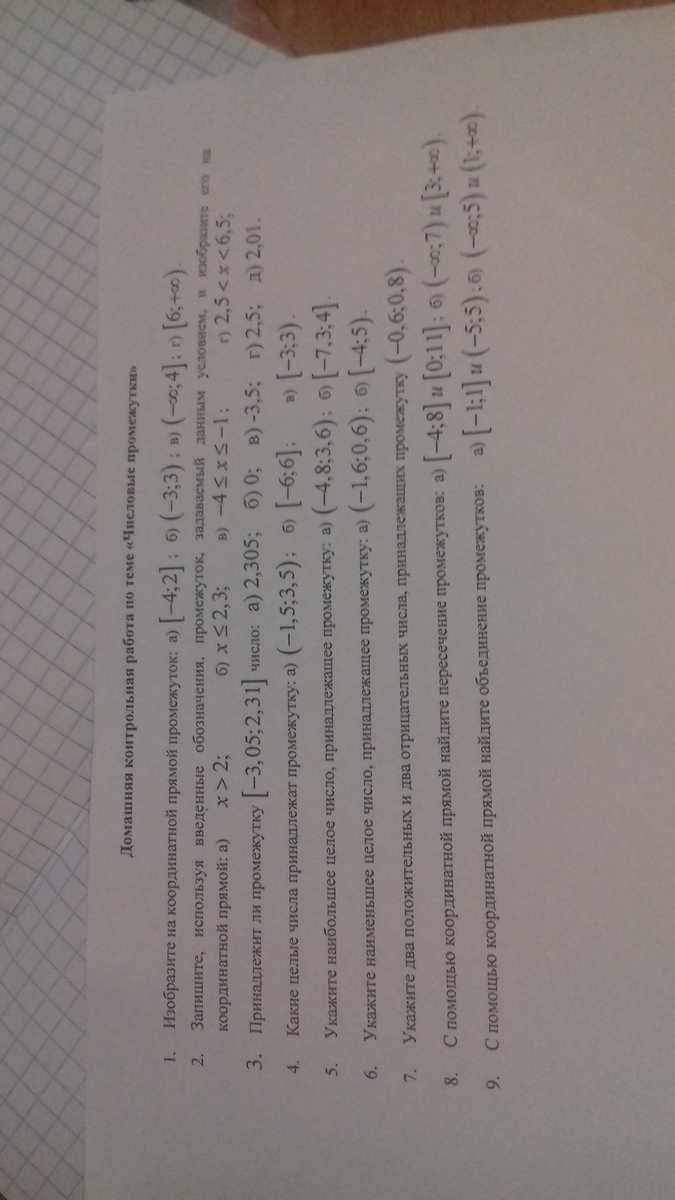 Домашняя контрольная работа по теме «Числовые промежутки»
1. Изобразите на координатной прямой промежуток: а) [−4;2] ; б) (−3;3) ; в) (−∞;4] ; г) [6;+∞).
2. Запишите, используя введенные обозначения, промежуток, задаваемый данным условием, и изобразите его на
координатной прямой: а) x > 2; б) x ≤ 2,3; в) −4 ≤ x ≤ −1 ; г) 2,5 < x < 6,5;
3. Принадлежит ли промежутку [−3,05;2,31] число: а) 2,305; б) 0; в) -3,5; г) 2,5; д) 2,01.
4. Какие целые числа принадлежат промежутку: а) (−1,5;3,5) ; б) [−6;6] ; в) [−3;3).
5. Укажите наибольшее целое число, принадлежащее промежутку: а) (−4,8;3,6) ; б) [−7,3;4].
6. Укажите наименьшее целое число, принадлежащее промежутку: а) (−1,6;0,6) ; б) [−4;5).
7. Укажите два положительных и два отрицательных числа, принадлежащих промежутку (−0,6;0,8).
8. С помощью координатной прямой найдите пересечение промежутков: а) [−4;8] и [0;11] ; б) (−∞;7) и [3;+∞).
9. С помощью координатной прямой найдите объединение промежутков: а) [−1;1] и (−5;5) ; б) (−∞;5) и (1;+∞).